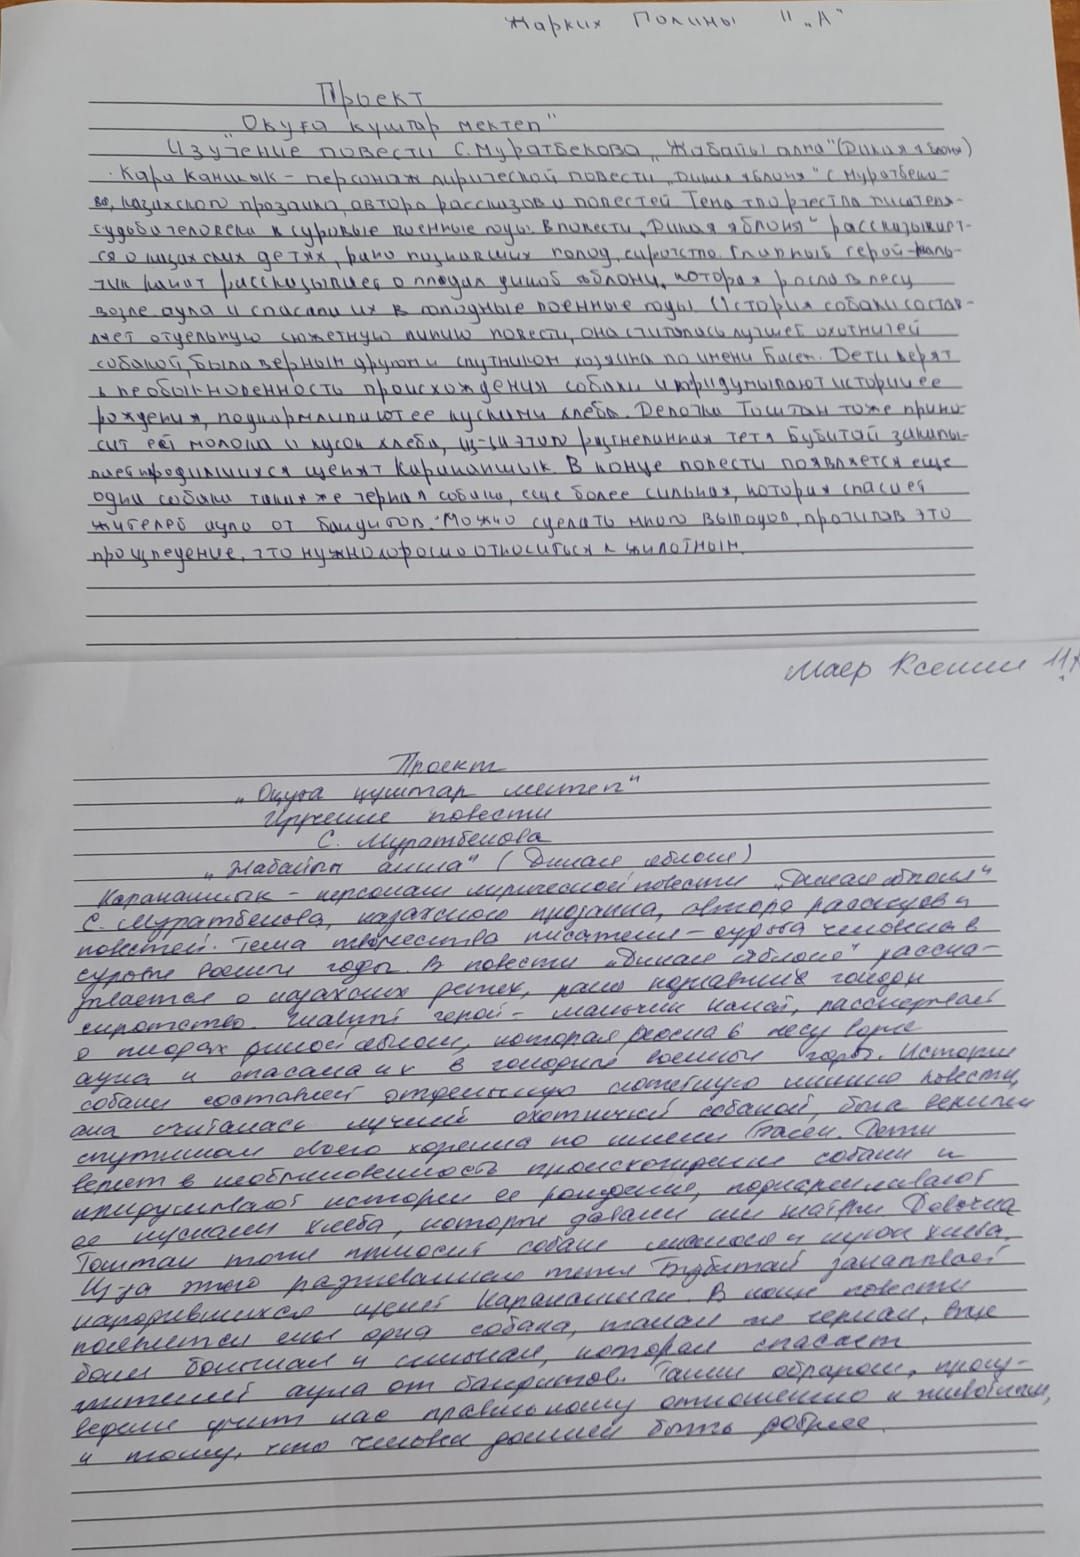 Жарких Полины 11 „А"
Проект
„Окуға құштар мектеп"
Изучение повести С. Муратбекова „Жабайы алма" (Дикая яблоня)
Кара Каншык – персонаж лирической повести „Дикая яблоня" С Муратбеко-
ва, казахского прозаика, автора рассказов и повестей. Тема творчества писателя-
судьба человека в суровые военные годы. В повести „Дикая яблоня" рассказывает-
ся о казахских детях, рано познавших голод, сиротство. Главный герой-маль-
чик Канат рассказывает о плодах дикой яблони, которая росла в лесу
возле аула и спасали их в голодные военные годы. История собаки состав-
ляет отдельную сюжетную линию повести, она считалась лучшей охотничей
собакой, была верным другом и спутником хозяина по имени Басен. Дети верят
в необыкновенность происхождения собаки и придумывают истории ее
рождения, подкармливают ее кусками хлеба. Девочка Тоштан тоже прино-
сит ей молока и кусок хлеба, из-за этого разгневанная тетя Бубитай закапы-
вает родившихся щенят Караканшык. В конце повести появляется еще
одна собака такая же черная собака, еще более сильная, которая спасает
жителей аула от бандитов. Можно сделать много выводов, прочитав это
произведение, что нужно хорошо относиться к животным.
Маер Ксении 11А
Проект
„Оқуға құштар мектеп"
Изучение повести
С. Муратбекова
„Жабайы алма" (Дикая яблоня)
Караканшык – персонаж лирической повести „Дикая яблоня"
С. Муратбекова, казахского прозаика, автора рассказов и
повестей. Тема творчества писателя – судьба человека в
суровые военные годы. В повести „Дикая яблоня" расска-
зывается о казахских детях, рано познавших голод и
сиротство. Главный герой – мальчик Канат, рассказывает
о плодах дикой яблони, которая росла в лесу возле
аула и спасала их в голодные военные годы. История
собаки составляет отдельную сюжетную линию повести,
она считалась лучшей охотничей собакой, была верным
спутником своего хозяина по имени Басен. Дети
верят в необыкновенность происхождения собаки и
придумывают истории ее рождения, подкармливают
ее кусками хлеба, которые давали им матери Девочка
Тоштан тоже приносит собаке молока и кусок хлеба.
Из-за этого разгневанная тетя Бубитай закапывает
народившихся щенят Караканшык. В конце повести
появляется еще одна собака, такая же черная, еще
более большая и сильная, которая спасает
жителей аула от бандитов. Таким образом, произ-
ведение учит нас правильному отношению к животным,
к тому, что человек должен быть добрее.